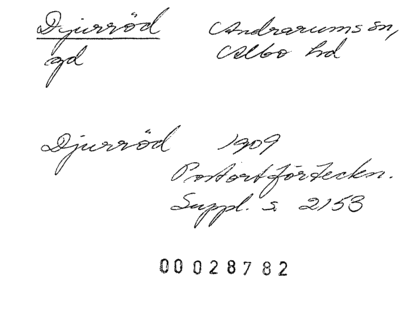 Djurröd Andrarums sn,
gd Albo hd
Djurröd 1909
Postortförteckn.
Suppl. s. 2153
00028782